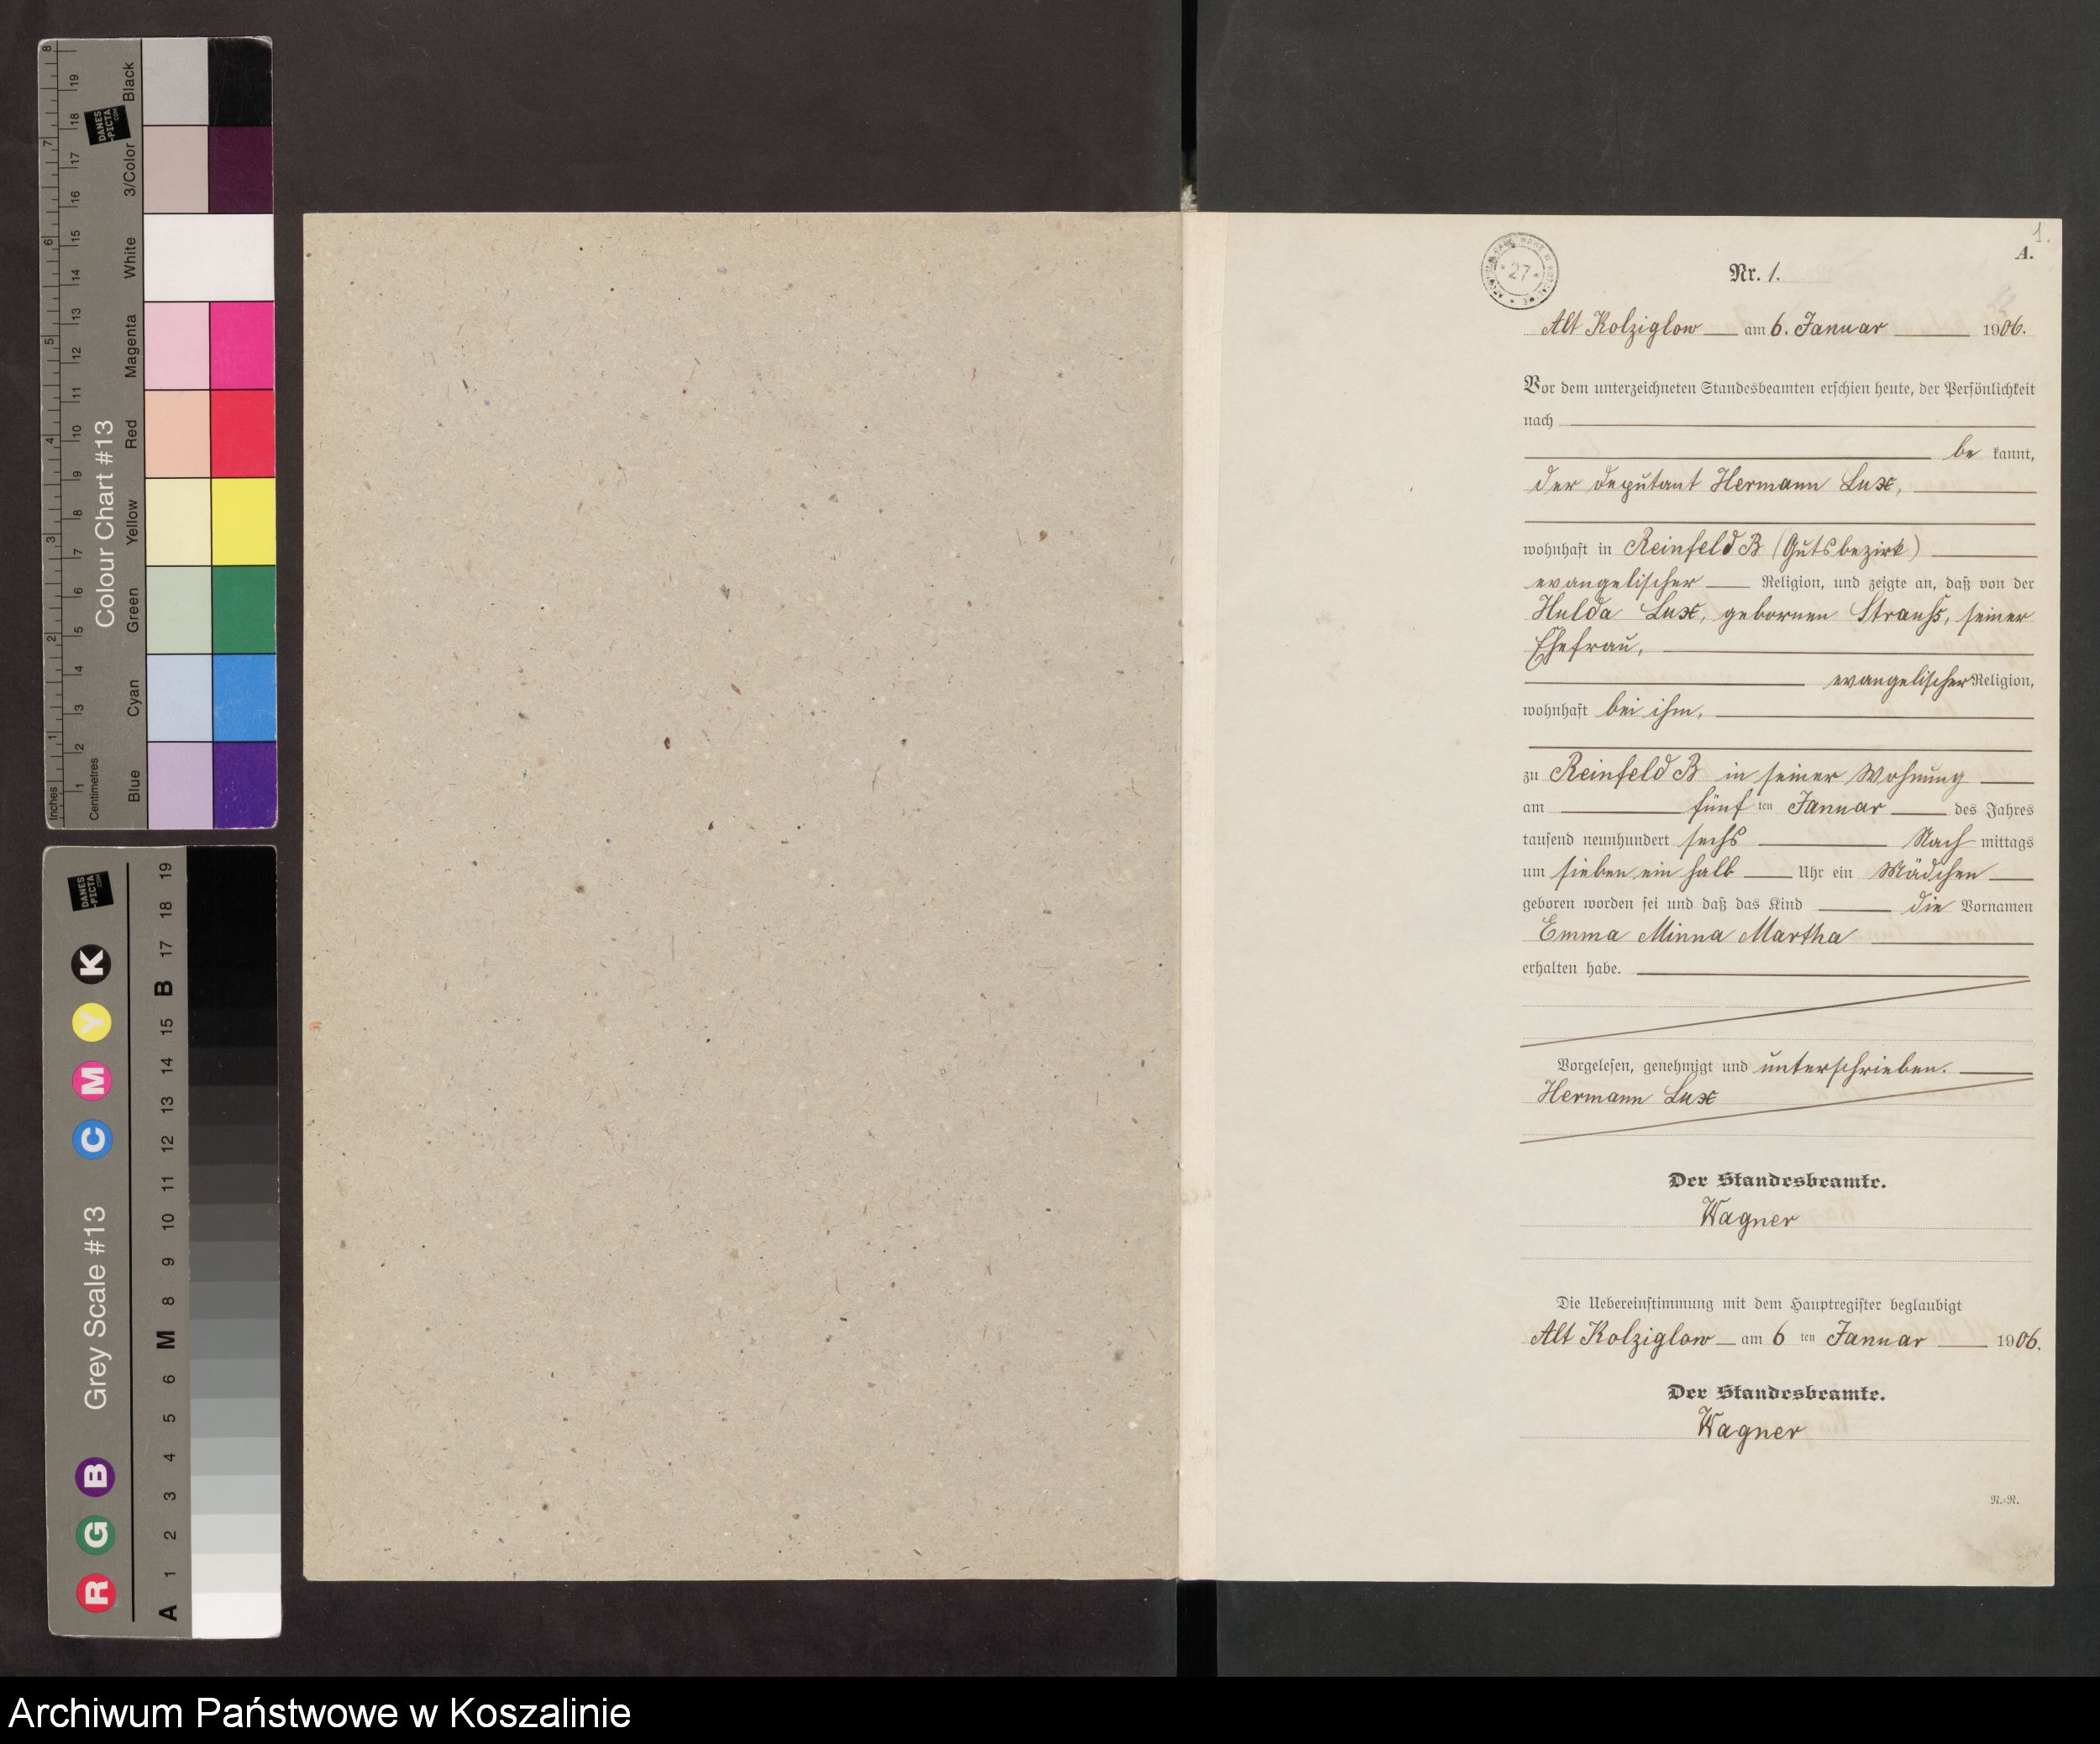 1.
A.
Nr. 1.
27
Alt Kolziglow am 6. Januar 1906.
Vor dem unterzeichneten Standesbeamten erschien heute, der Persönlichkeit
nach
be kannt,
der Deputant Hermann Lux,
wohnhaft in Reinfeld B (Gutsbezirk)
evangelischer Religion, und zeigte an, daß von der
Hulda Lux, gebornen Strauß, seiner
Ehefrau,
evangelischer Religion,
wohnhaft bei ihm,
zu Reinfeld B in seiner Wohnung
am fünf ten Januar des Jahres
tausend neunhundert sechs Nach mittags
um sieben ein halb Uhr ein Mädchen
geboren worden sei und daß das Kind die Vornamen
Emma Minna Martha
erhalten habe.
Vorgelesen, genehmigt und unterschrieben.
Hermann Lux
Der Standesbeamte.
Wagner
Die Uebereinstimmung mit dem Hauptregister beglaubigt
Alt Kolziglow am 6 ten Januar 1906.
Der Standesbeamte.
Wagner
N.-R.
Colour Chart #13
Black
3/Color
White
Magenta
Red
Yellow
Green
Cyan
Blue
Inches 1 2 3 4 5 6 7 8
Centimetres 1 2 3 4 5 6 7 8 9 10 11 12 13 14 15 16 17 18 19
DANES
-PICTA
.COM
Grey Scale #13
R G B C M Y K
A 1 2 3 4 5 6 M 8 9 10 11 12 13 14 15 B 17 18 19
DANES
-PICTA
.COM
Archiwum Państwowe w Koszalinie